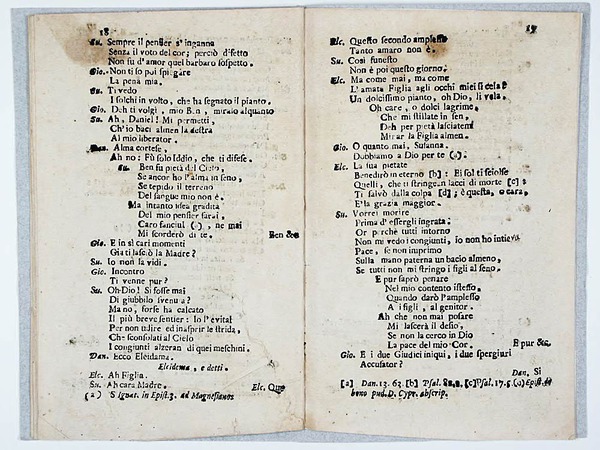 18
Su. Sempre il pensier s'inganna
Senza il voto del cor; perciò difetto
Non fu d'amor quel barbaro sospetto.
Gio. Non ti so poi spiegare
La pena mia.
Su. Ti vedo
I solchi in volto, che ha segnato il pianto.
Gio. Deh ti volgi, mio B.n, miralo alquanto
Su. Ah, Daniel! Mi permetti,
Ch'io baci almen la destra
Al mio liberator.
Dan. Alma cortese,
Ah no: Fù solo Iddio, che ti difese.
Su. Ben fu pietà del Cielo,
Se ancor ho l'alma in seno,
Se tepido il terreno
Del sangue mio non è.
Ma intanto idea gradita
Del mio pensier sarai.
Caro fanciul (a), ne mai
Mi scorderò di te. Ben &c.
Gio. E in sì cari momenti
Gia ti lasciò la Madre?
Su. Io non la vidi.
Gio. Incontro
Ti venne pur?
Su. Oh Dio! Si fosse mai
Di giubbilo svenuta?
Ma no, forse ha calcato
Il più breve sentier: Io l'evitai
Per non udire ed inasprir le strida,
Che sconsolati al Cielo
I congiunti alzeran di quei meschini.
Dan. Ecco Elcidama.
Elcidama, e detti.
Elc. Ah Figlia.
Su. Ah cara Madre.
Elc. Que
(a) S Ignat. in Epist. 3. ad Magnesianos
19
Elc. Questo secondo amplesso
Tanto amaro non è.
Su. Così funesto
Non è poi questo giorno.
Elc. Ma come mai, ma come
L'amata Figlia agli occhi miei si cela?
Un dolcissimo pianto, oh Dio, li vela.
Oh care, o dolci lagrime,
Che mi stillate in sen,
Deh per pietà lasciatemi
Mirar la Figlia almen.
Gio. O quanto mai, Susanna.
Dobbiamo a Dio per te (a).
Elc. La sua pietate
Benedirò in eterno [b]: Ei sol ti sciolse
Quelli, che ti stringean lacci di morte [c];
Ti salvò dalla colpa [d]; è questa, o cara,
E' la grazia maggior.
Su. Vorrei morire
Prima d'essergli ingrata:
Or perchè tutti intorno
Non mi vedo i congiunti, io non ho intiera
Pace, se non imprimo
Sulla mano paterna un bacio almeno,
Se tutti non mi stringo i figli al seno.
E pur saprò penare
Nel mio contento istesso,
Quando darò l'amplesso
A i figli, al genitor.
Ah che non mai posare
Mi lascerà il desio,
Se non la cerco in Dio
La pace del mio Cor. E pur &c.
Gio. E i due Giudici iniqui, i due spergiuri
Accusator?
Dan. Si
[a] Dan. 13. 63. [b] Psal. [c] Psal. 17. 5. Epist.
bono pud. D. Cypr. abscrip.